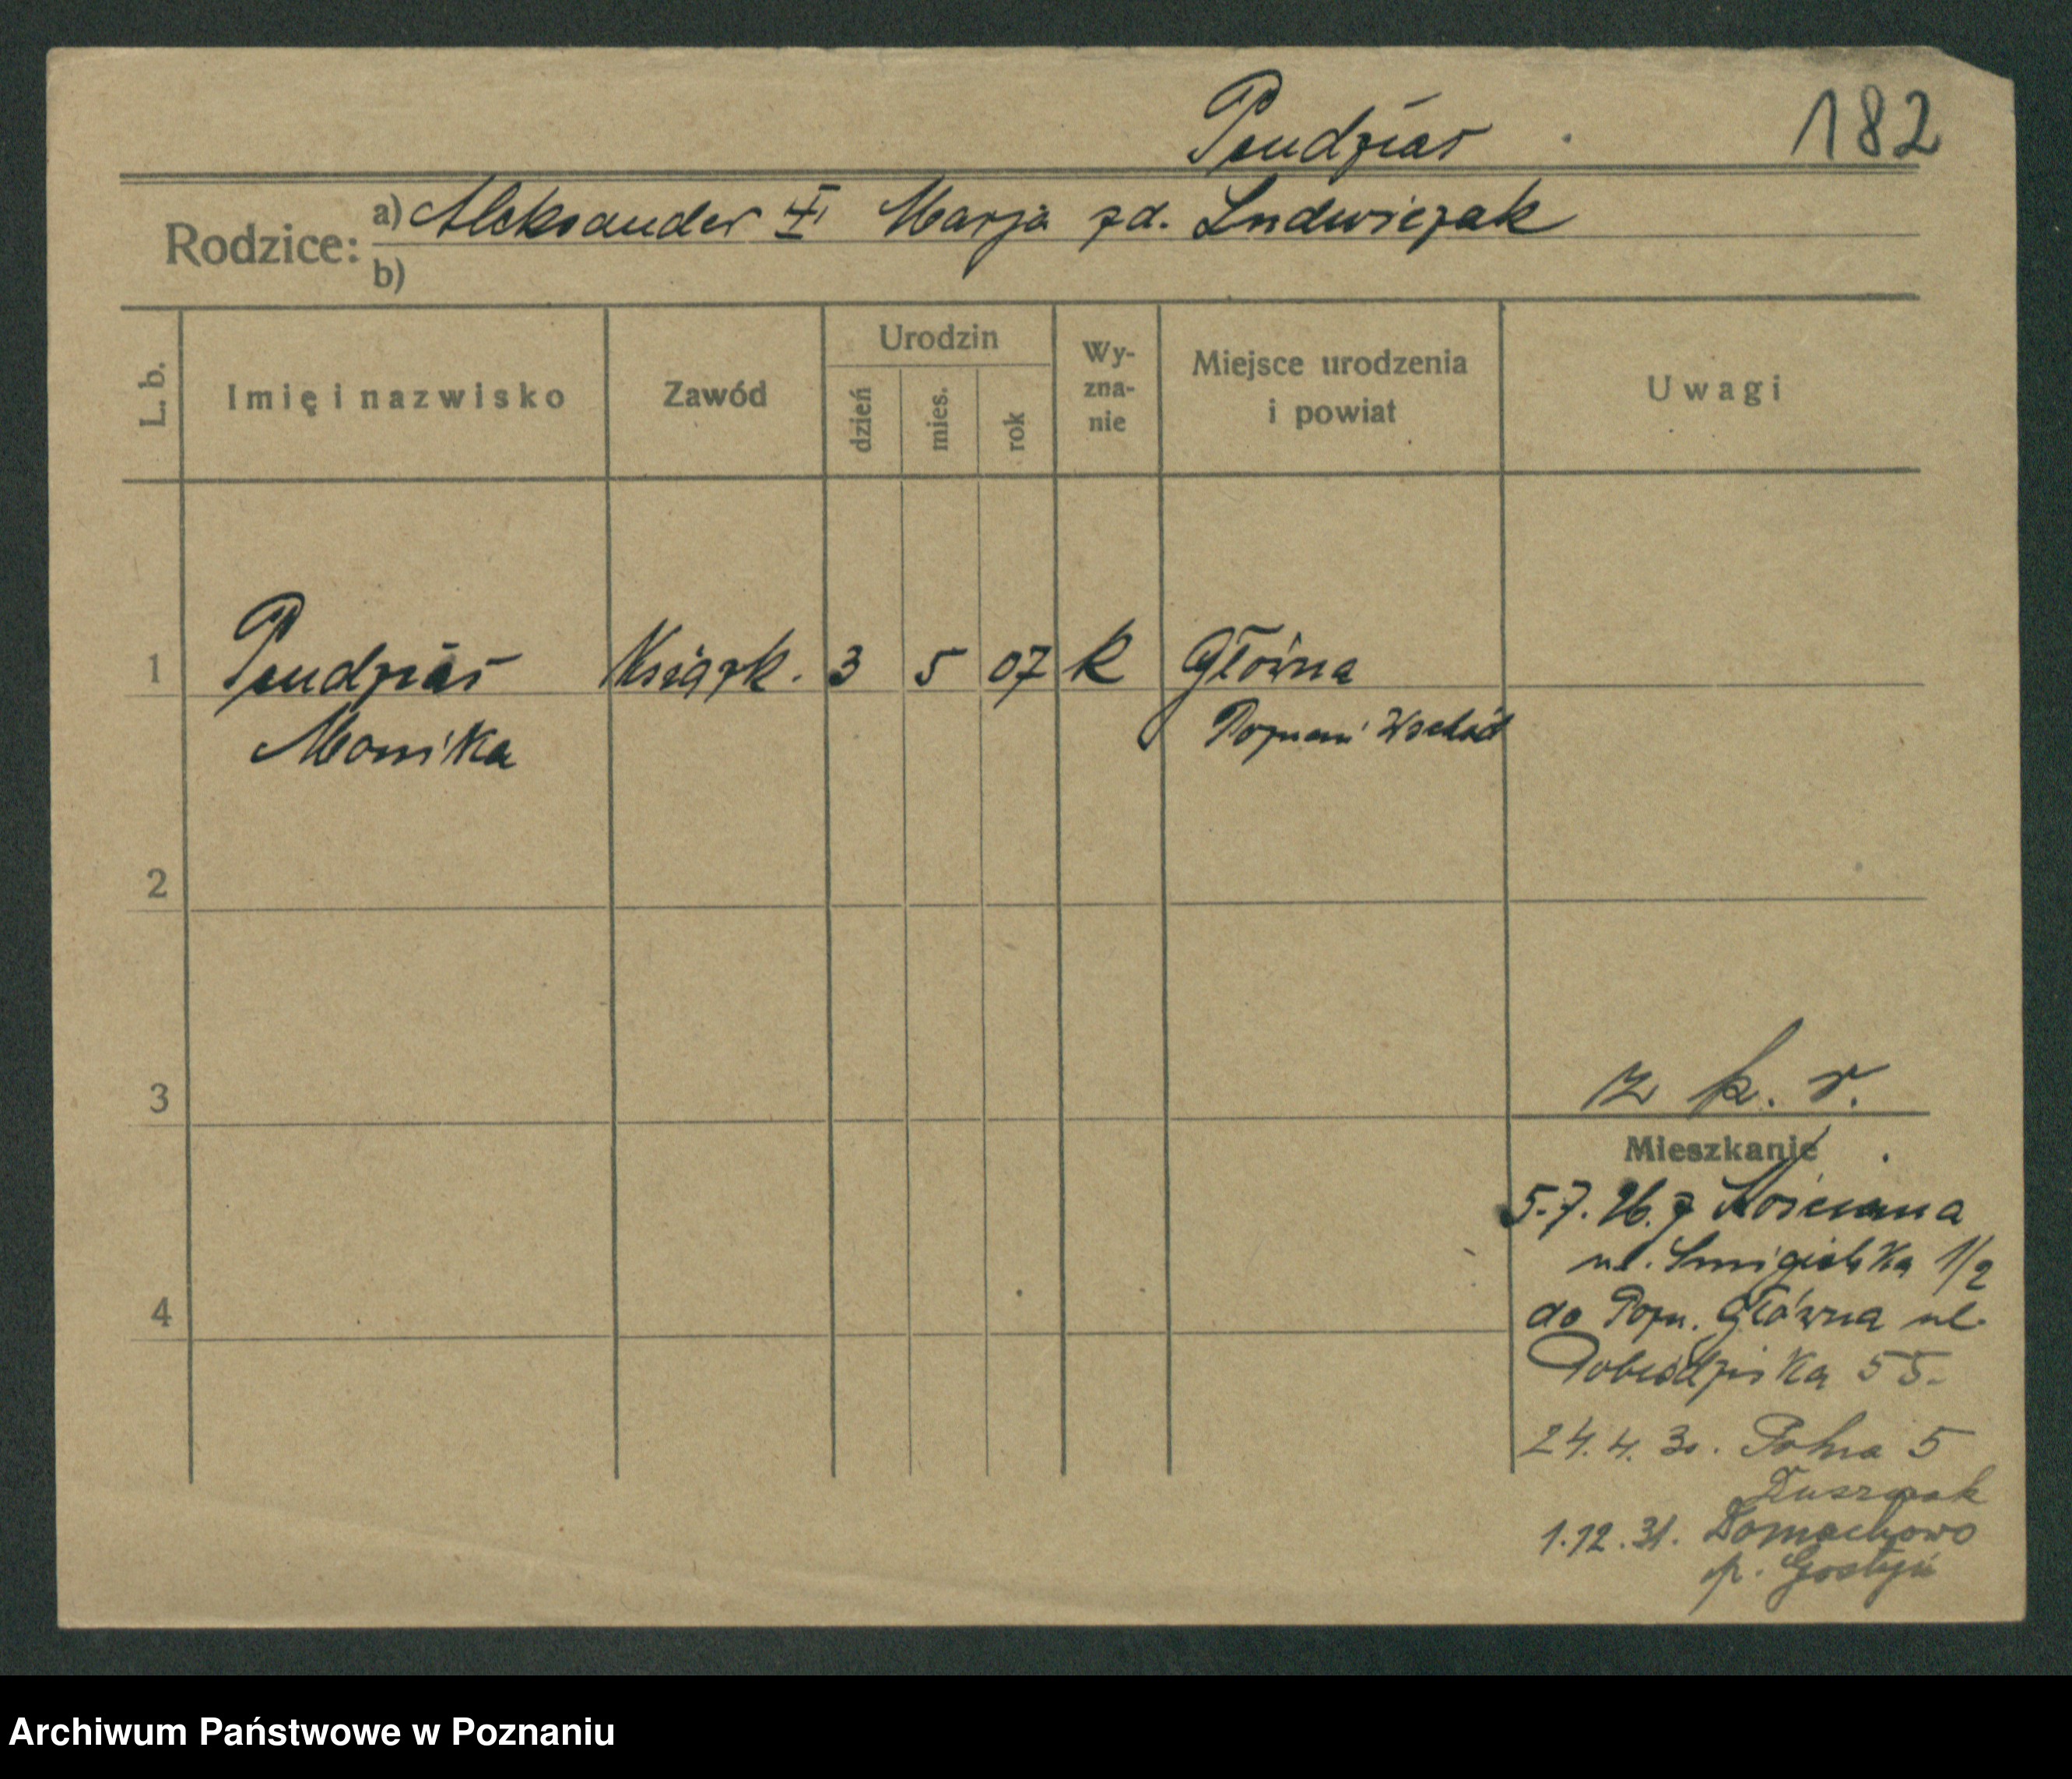 Pendziar
182
Rodzice: a) Aleksander II Marja zd. Ludwiczak
b)
L. b. Imię i nazwisko Zawód Urodzin dzień mies. rok Wyznanie Miejsce urodzenia i powiat Uwagi
1 Pendziar Książk. 3 5 07 k Główna
Monika Poznań Wschód
2
3
z k. r.
Mieszkanie
5.7.26. z Kościana
ul. Śmigielska 1/2
4
do Pozn. Główna ul.
Pobiedziska 55.
24.4.30. Polna 5
1.12.31. Domachowo
p. Gostyń
Archiwum Państwowe w Poznaniu